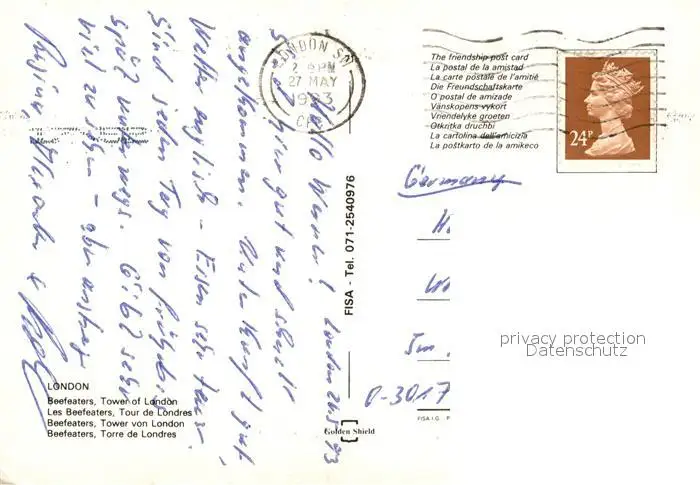 LONDON SW
2 PM
27 MAY
1993
The friendship post card
La postal de la amistad
La carte postale de l'amitié
Die Freundschaftskarte
O postal de amizade
Vänskopens vykort
Vriendelyke groeten
Otkritka druchbi
La cartolina dell'amicizia
La poŝtkarto de la amikeco
24P
London 24.5.93
Hallo Werner!
sind hier gut und schnell
angekommen. Unterkunft gut
Wetter englisch - Essen sehr teuer.
Sind jeden Tag von früh bis
spät unterwegs. Gibt sehr
viel zu sehen - aber anstreng
Regina, Alexander &
FISA - Tel. 071-2540976
Germany
H.
W
Im
D-3017
privacy protection
Datenschutz
LONDON
Beefeaters, Tower of London
Les Beefeaters, Tour de Londres
Beefeaters, Tower von London
Beefeaters, Torre de Londres
Golden Shield
FISA I.G.